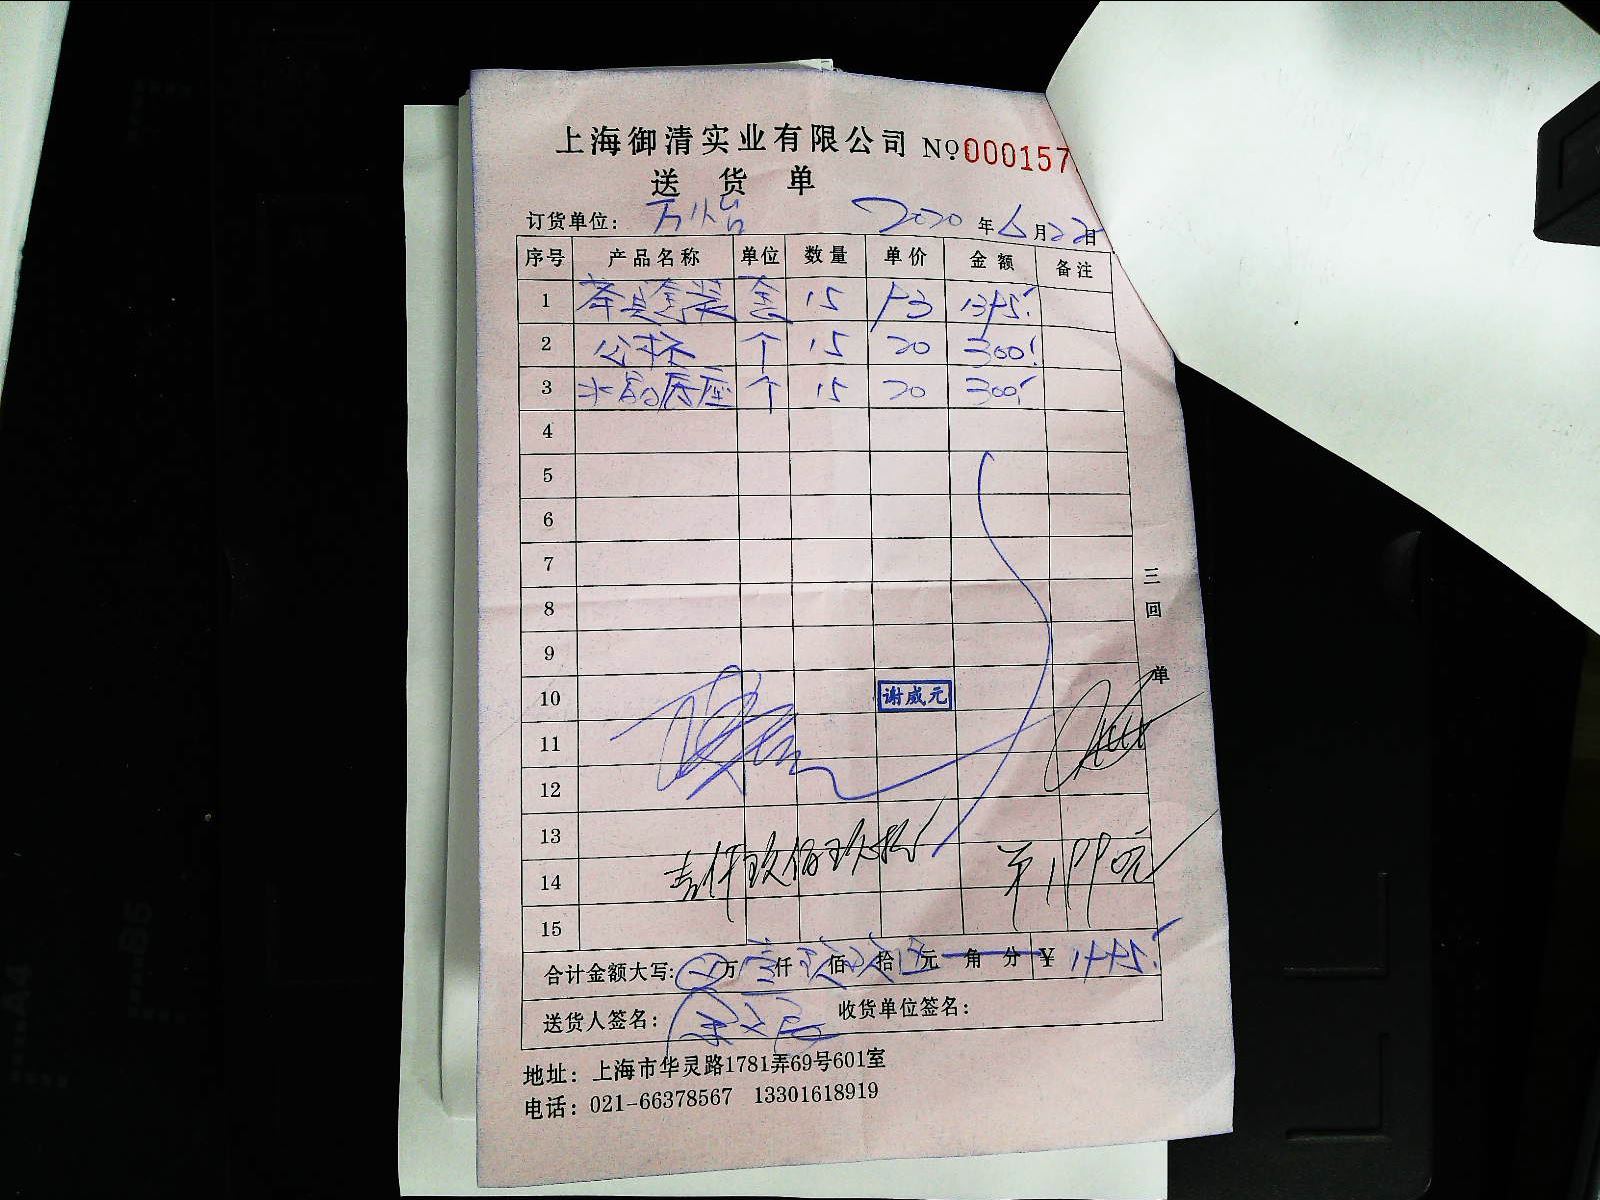 上海御清实业有限公司 NO 000157
送货单
订货单位: 万怡 2020年6月22日
序号 产品名称 单位 数量 单价 金额 备注
1 茶具套装 套 15 93 1395
2 公杯 个 15 20 300
3 水晶底座 个 15 20 300
4
5
6
7
8
9
10 谢威元
11
12
13
壹仟玖佰玖拾 ¥1990元
14
15
合计金额大写: 万壹仟玖佰玖拾伍元角分 ¥1995
送货人签名: 收货单位签名:
地址: 上海市华灵路1781弄69号601室
电话: 021-66378567 13301618919
三回单